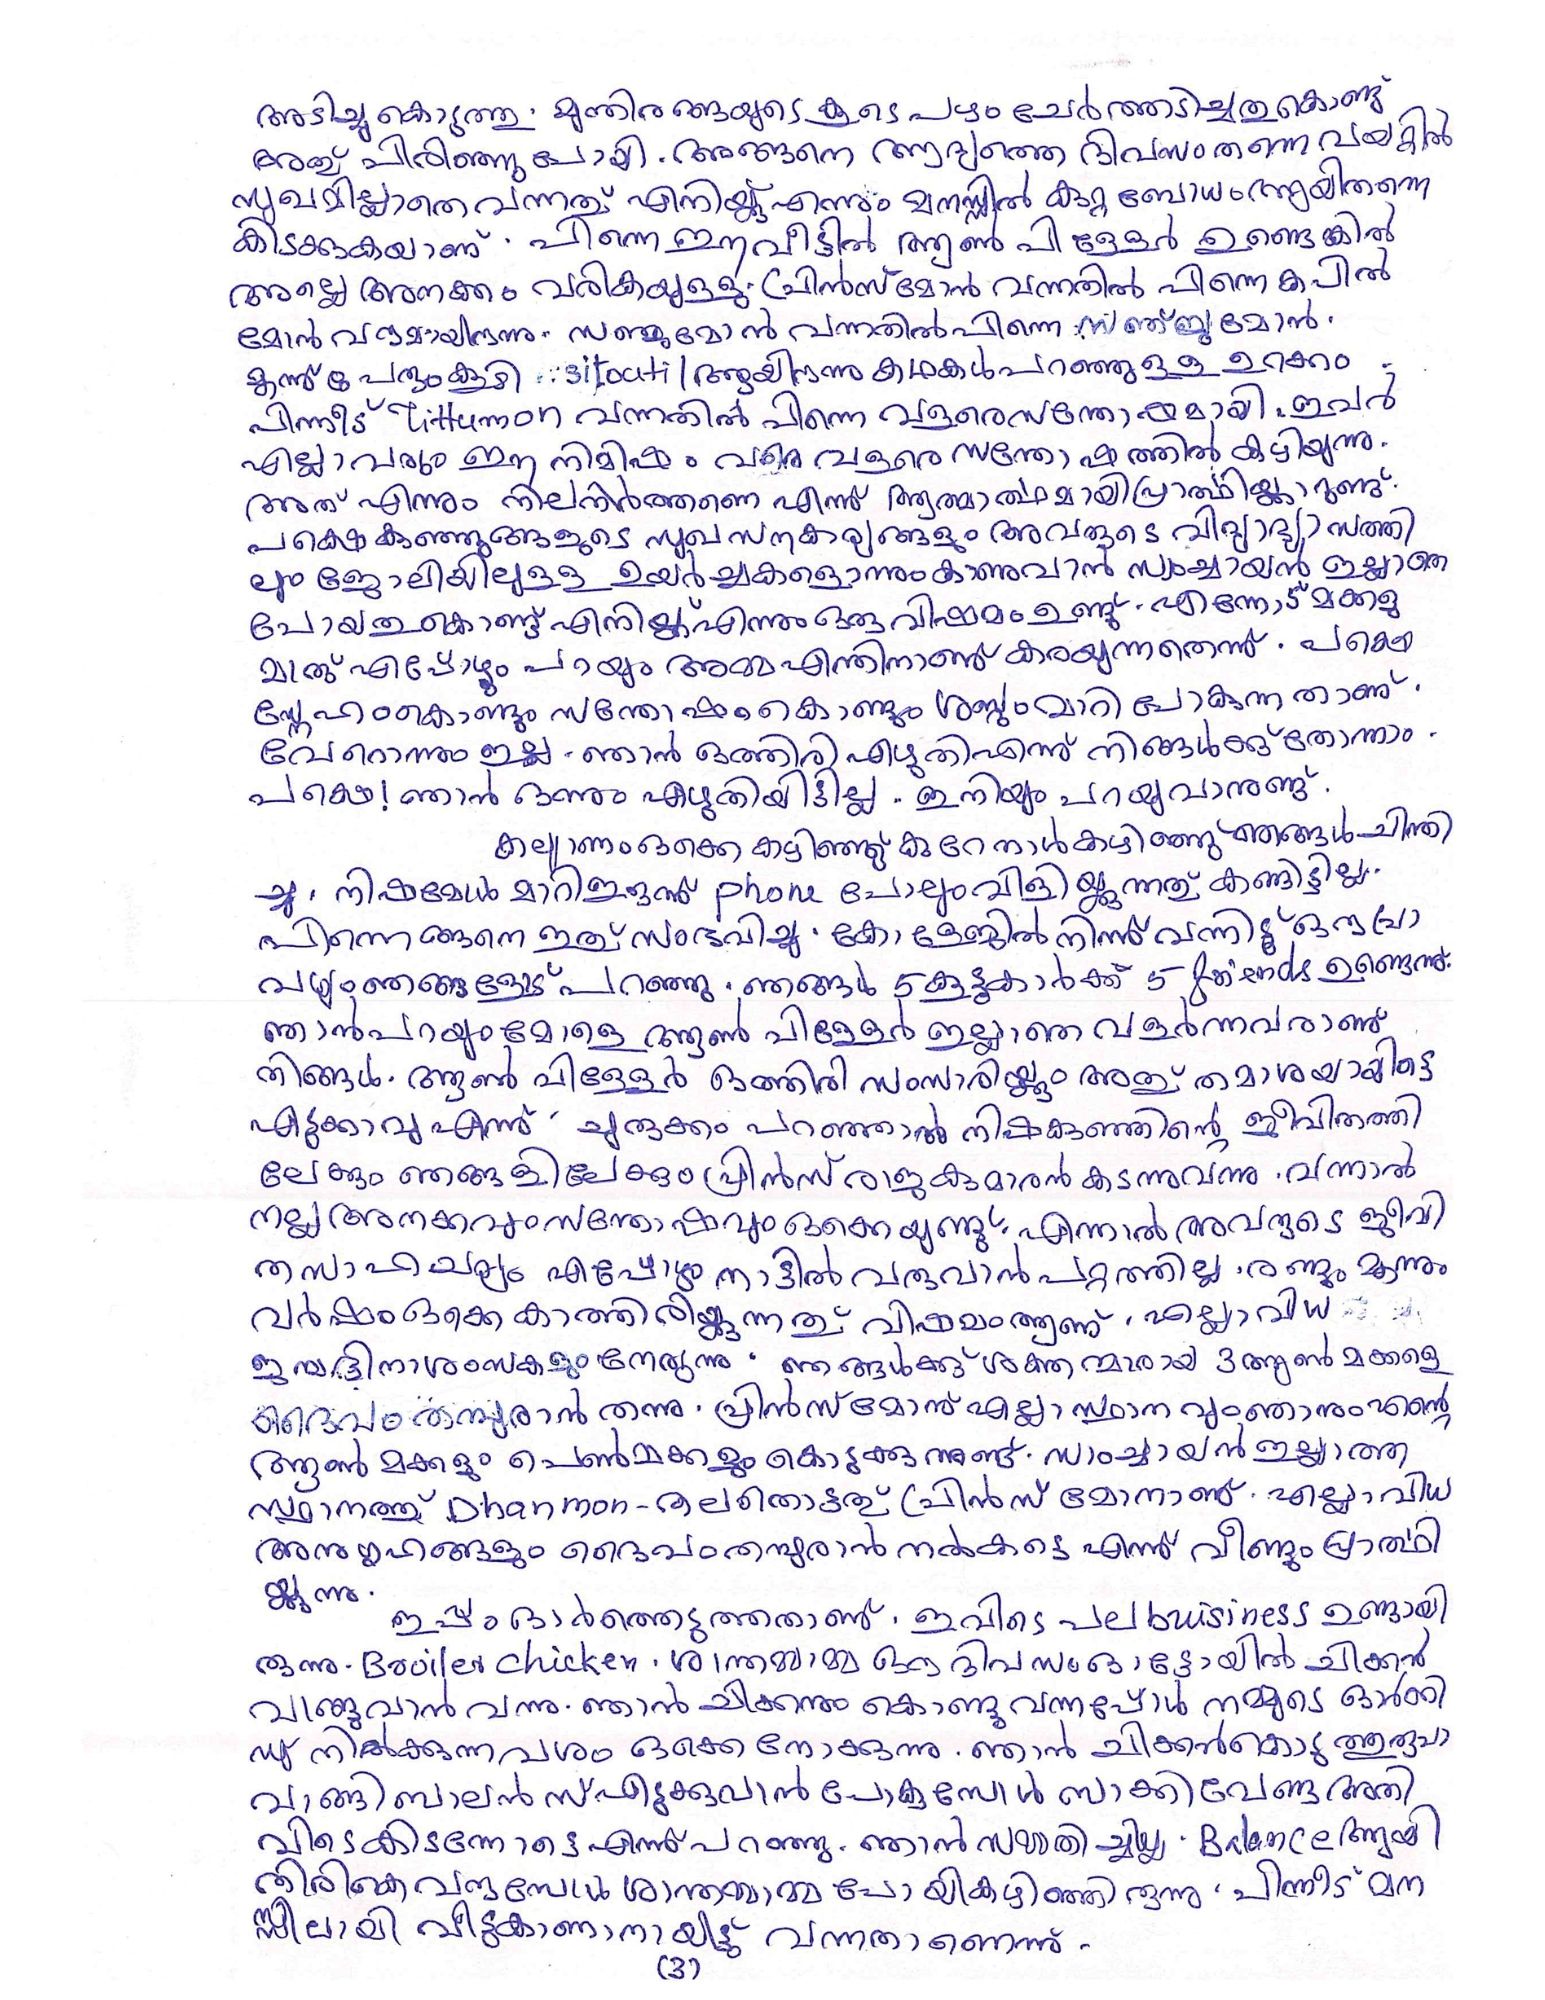 അടിച്ചു കൊടുത്തു. മുന്തിരങ്ങയുടെ കൂടെ പഴം ചേർത്തടിച്ചതുകൊണ്ട്
അത് പിരിഞ്ഞുപോയി. അങ്ങനെ ആദ്യത്തെ ദിവസം തന്നെ വയറ്റിൽ
സുഖമില്ലാതെ വന്നത് എനിയ്ക്ക് എന്നും മനസ്സിൽ കുറ്റബോധം ആയി തന്നെ
കിടക്കുകയാണ്. പിന്നെ ഈ വീട്ടിൽ ആൺ പിള്ളേർ ഉണ്ടെങ്കിൽ
അല്ലെ അനക്കം വരികയുള്ളു. പ്രിൻസ് മോൻ വന്നതിൽ പിന്നെ കപിൽ
മോൻ വന്നുമായിരുന്നു. സഞ്ചുമോൻ വന്നതിൽപിന്നെ സഞ്ജുമോൻ.
മൂന്ന് പേരുംകൂടി ആയിരുന്നു കഥകൾപറഞ്ഞുള്ള ഉറക്കം
പിന്നീട് Tittumon വന്നതിൽ പിന്നെ വളരെസന്തോഷമായി. ഇവർ
എല്ലാവരും ഈ നിമിഷം വരെ വളരെ സന്തോഷത്തിൽ കഴിയുന്നു.
അത് എന്നും നിലനിർത്തണെ എന്ന് ആത്മാർത്ഥമായി പ്രാർത്ഥിയ്ക്കാറുണ്ട്.
പക്ഷെ കുഞ്ഞുങ്ങളുടെ സുഖസൗകര്യങ്ങളും അവരുടെ വിദ്യാഭ്യാസത്തി
ലും ജോലിയിലുള്ള ഉയർച്ചകളൊന്നും കാണുവാൻ സാംച്ചായൻ ഇല്ലാതെ
പോയതുകൊണ്ട് എനിയ്ക്ക് എന്നും ഒരു വിഷമം ഉണ്ട്. എന്നോട് മക്കളു
മാര് എപ്പോഴും പറയും അമ്മ എന്തിനാണ് കരയുന്നതെന്ന്. പക്ഷെ
സ്നേഹംകൊണ്ടും സന്തോഷം കൊണ്ടും ശബ്ദം മാറി പോകുന്നതാണ്.
വേറൊന്നും ഇല്ല. ഞാൻ ഒത്തിരി എഴുതിഎന്ന് നിങ്ങൾക്ക് തോന്നാം.
പക്ഷെ! ഞാൻ ഒന്നും എഴുതിയിട്ടില്ല. ഇനിയും പറയുവാനുണ്ട്.
കല്യാണം ഒക്കെ കഴിഞ്ഞ് കുറേ നാൾ കഴിഞ്ഞ് ഞങ്ങൾ ചിന്തി
ച്ചു. നിഷമോൾ മാറിഇരുന്ന് phone പോലും വിളിയ്ക്കുന്നത് കണ്ടിട്ടില്ല.
പിന്നെങ്ങനെ ഇത് സംഭവിച്ചു. കോളേജിൽ നിന്ന് വന്നിട്ട് ഒരു പ്രാ
വശ്യം ഞങ്ങളോട് പറഞ്ഞു. ഞങ്ങൾ 5 കൂട്ടുകാർക്ക് 5 friends ഉണ്ടെന്ന്.
ഞാൻ പറയും മോളെ ആൺ പിള്ളേർ ഇല്ലാതെ വളർന്നവരാണ്
നിങ്ങൾ. ആൺ പിള്ളേർ ഒത്തിരി സംസാരിയ്ക്കും അത് തമാശയായിട്ടെ
എടുക്കാവു എന്ന്. ചുരുക്കം പറഞ്ഞാൽ നിഷകുഞ്ഞിന്റെ ജീവിതത്തി
ലേക്കും ഞങ്ങളിലേക്കും പ്രിൻസ് രാജകുമാരൻ കടന്നുവന്നു. വന്നാൽ
നല്ല അനക്കവും സന്തോഷവും ഒക്കെയുണ്ട്. എന്നാൽ അവരുടെ ജീവി
ത സാഹചര്യം എപ്പോഴും നാട്ടിൽ വരുവാൻ പറ്റത്തില്ല. രണ്ടും മൂന്നും
വർഷം ഒക്കെ കാത്തിരിയ്ക്കുന്നത് വിഷമം ആണ്. എല്ലാവിധ
ജന്മദിനാശംസകളും നേരുന്നു. ഞങ്ങൾക്ക് ശക്തന്മാരായ 3 ആൺ മക്കളെ
ദൈവം തമ്പുരാൻ തന്നു. പ്രിൻസ് മോന് എല്ലാ സ്ഥാനവും ഞാനും എന്റെ
ആൺ മക്കളും പെൺമക്കളും കൊടുക്കുന്നുണ്ട്. സാംച്ചായൻ ഇല്ലാത്ത
സ്ഥാനത്ത് Dhanmon-തലതൊട്ടത് പ്രിൻസ് മോനാണ്. എല്ലാവിധ
അനുഗ്രഹങ്ങളും ദൈവം തമ്പുരാൻ നൽകട്ടെ എന്ന് വീണ്ടും പ്രാർത്ഥി
യ്ക്കുന്നു.
ഇപ്പം ഓർത്തെടുത്തതാണ്. ഇവിടെ പല business ഉണ്ടായി
രുന്നു. Broiler chicken. ശാന്തമ്മാമ്മ ഒരു ദിവസം ഓട്ടോയിൽ ചിക്കൻ
വാങ്ങുവാൻ വന്നു. ഞാൻ ചിക്കനും കൊണ്ടുവന്നപ്പോൾ നമ്മുടെ ഓർക്കി
ഡ് നിൽക്കുന്നവശം ഒക്കെ നോക്കുന്നു. ഞാൻ ചിക്കൻകൊടുത്തുരൂപാ
വാങ്ങി ബാലൻസ് എടുക്കുവാൻ പോകുമ്പോൾ ബാക്കി വേണ്ട അതി
വിടെകിടന്നോട്ടെ എന്ന് പറഞ്ഞു. ഞാൻ സമ്മതിച്ചില്ല. Balance ആയി
തിരികെ വന്നുമ്പോൾ ശാന്തമ്മാമ്മ പോയികഴിഞ്ഞിരുന്നു. പിന്നീട് മന
സ്സിലായി വീടുകാണാനായിട്ട് വന്നതാണെന്ന്.
(3)